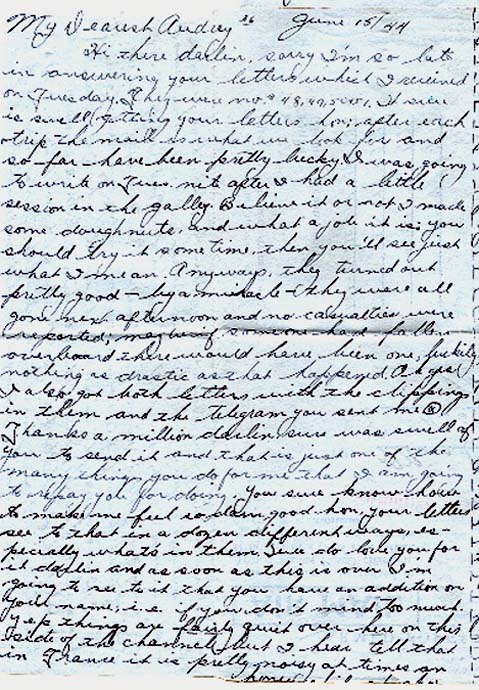 My Dearest Audrey 26 June 15/44
Hi there darlin, sorry I'm so late
in answering your letters which I received
on Tuesday. They were no.s 48, 49, 50 & 51. It sure
is swell getting your letters hon, after each
trip the mail is what we look for and
so-far-have been pretty lucky. I was going
to write on Tues. nite after I had a little
session in the gally. Believe it or not I made
some doughnuts, and what a job it is, you
should try it some time, then you'll see just
what I mean. Anyways, they turned out
pretty good - by a miracle - they were all
gone next afternoon and no casualties were
reported; maybe if someone had fallen
overboard there would have been one, luckily
nothing as drastic as that happened. Ah yes
I also got both letters with the clippings
in them and the telegram you sent me
Thanks a million darlin, sure was swell of
you to send it and that is just one of the
many things you do for me that I am going
to repay you for doing. You sure know how
to make me feel so darn good hon, your letters
see to that in a dozen different ways, es-
pecially what's in them. Sure do love you for
it darlin and as soon as this is over I'm
going to see to it that you have an addition on
your name, i.e. if you don't mind too much.
Yep things are fairly quiet over here on this
side of the channel, but I hear tell that
in France it is pretty noisy at times an